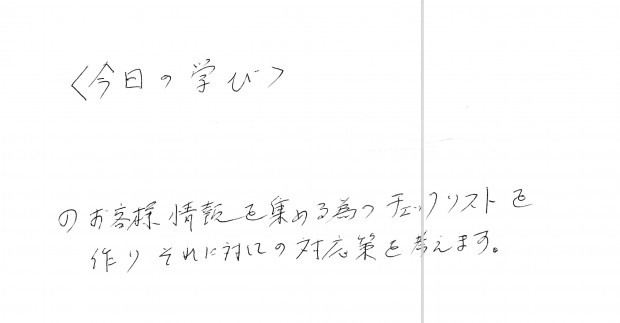 〈今日の学び〉
のお客様情報を集める為のチェックリストを
作りそれに対しての対応策を考えます。